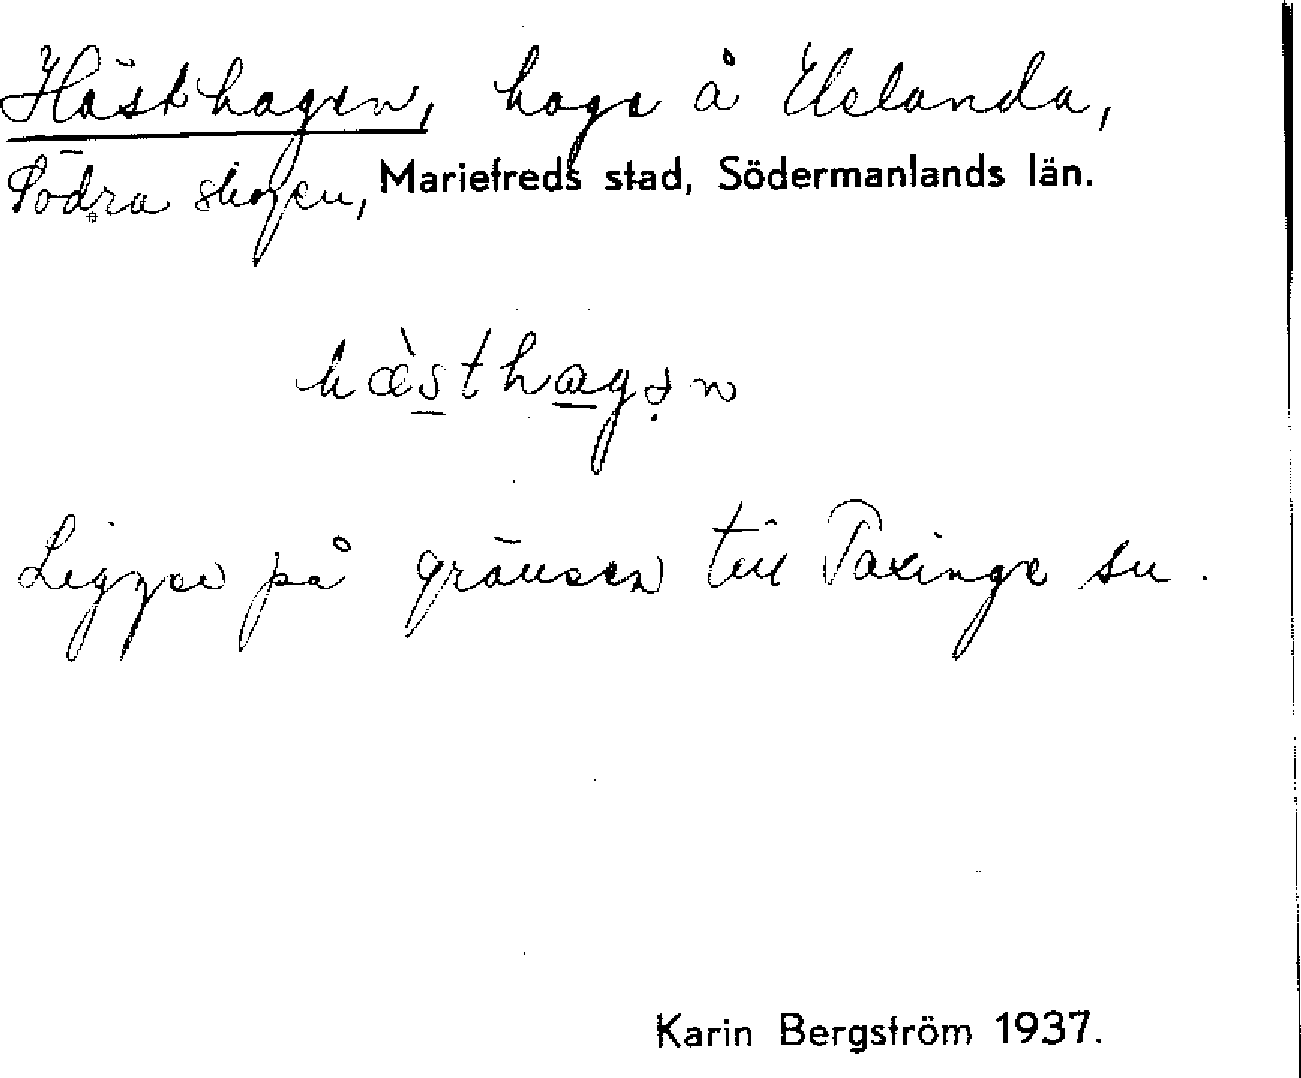 Hästhagen, hage å Elelanda,
Södra skogen, Mariefreds stad, Södermanlands län.
hæ̀sthagən
Ligger på gränsen till Taxinge sn.
Karin Bergström 1937.